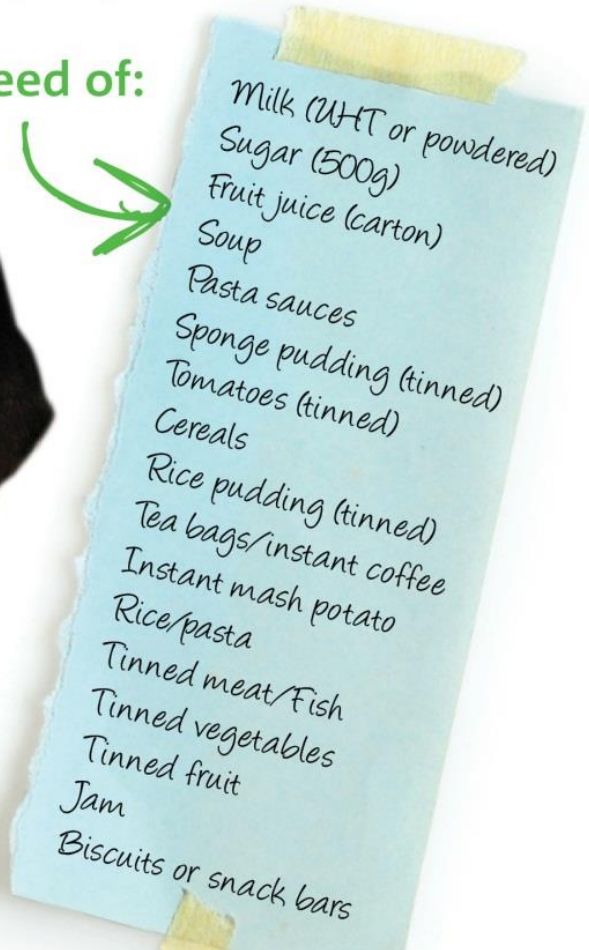 eed of:
Milk (UHT or powdered)
Sugar (500g)
Fruit juice (carton)
Soup
Pasta sauces
Sponge pudding (tinned)
Tomatoes (tinned)
Cereals
Rice pudding (tinned)
Tea bags/instant coffee
Instant mash potato
Rice/pasta
Tinned meat/Fish
Tinned vegetables
Tinned fruit
Jam
Biscuits or snack bars